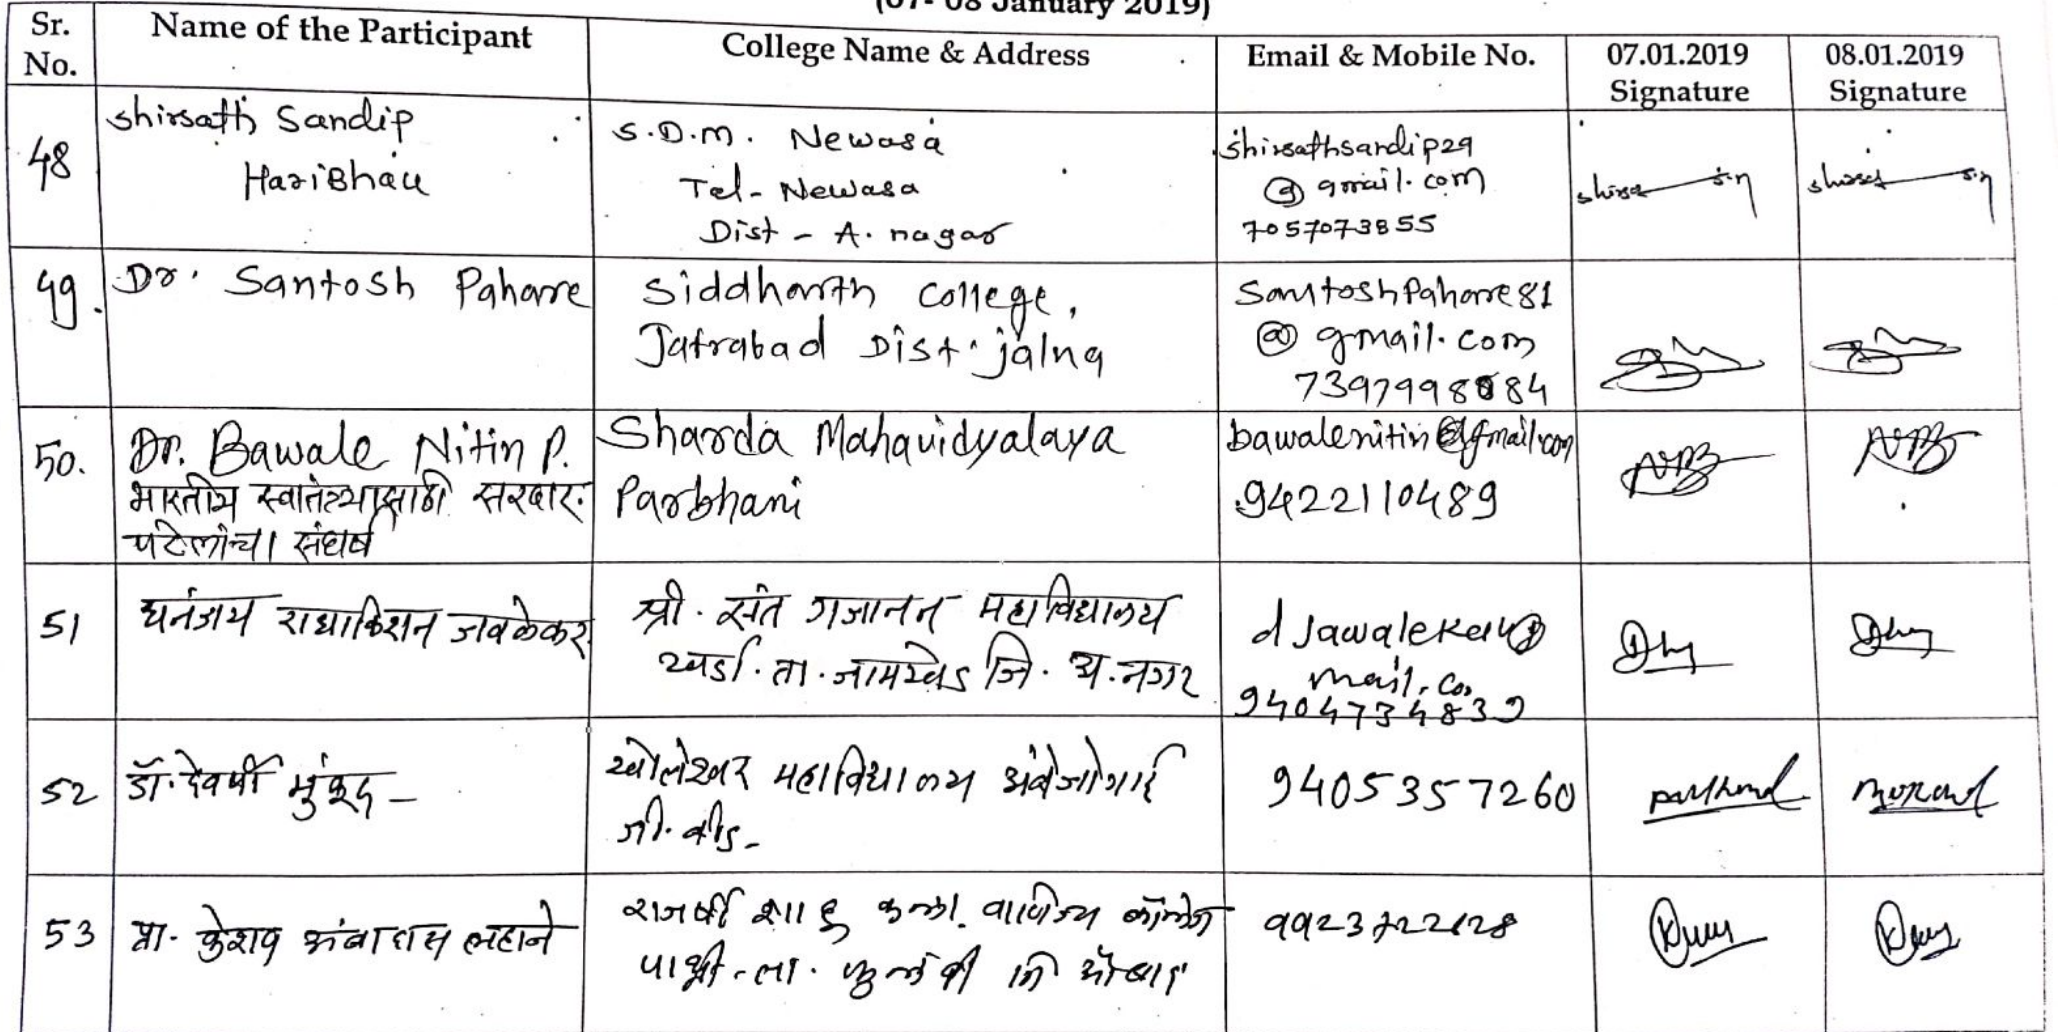 (07- 08 January 2019)
Sr. No.
Name of the Participant
College Name & Address
Email & Mobile No.
07.01.2019 Signature
08.01.2019 Signature
48
Shirsath Sandip
HariBhau
S.D.M. Newasa
Tal- Newasa
Dist - A. nagar
shirsathsandip29
@ gmail.com
7057073855
49.
Dr. Santosh Pahare
Siddharth College,
Jafrabad Dist. jalna
SantoshPahare81
@ gmail.com
7397998084
50.
Dr. Bawale Nitin P.
भारतीय स्वातंत्र्यासाठी सरदार
पटेलांचा संघर्ष
Sharda Mahavidyalaya
Parbhani
bawalenitin@gmail.com
9422110489
51
धनंजय राधाकिशन जवळेकर
श्री. संत गजानन महाविद्यालय
खर्डा. ता. जामखेड जि. अ.नगर
mail.co
9404734839
52
डॉ. देवर्षी मुकुंद -
खोलेश्वर महाविद्यालय अंबेजोगाई
जी. बीड -
9405357260
53
प्रा. केशव अंबादास लहाने
राजर्षी शाहू कला. वाणिज्य कॉलेज
पाथ्री - ता. फुलंब्री जि